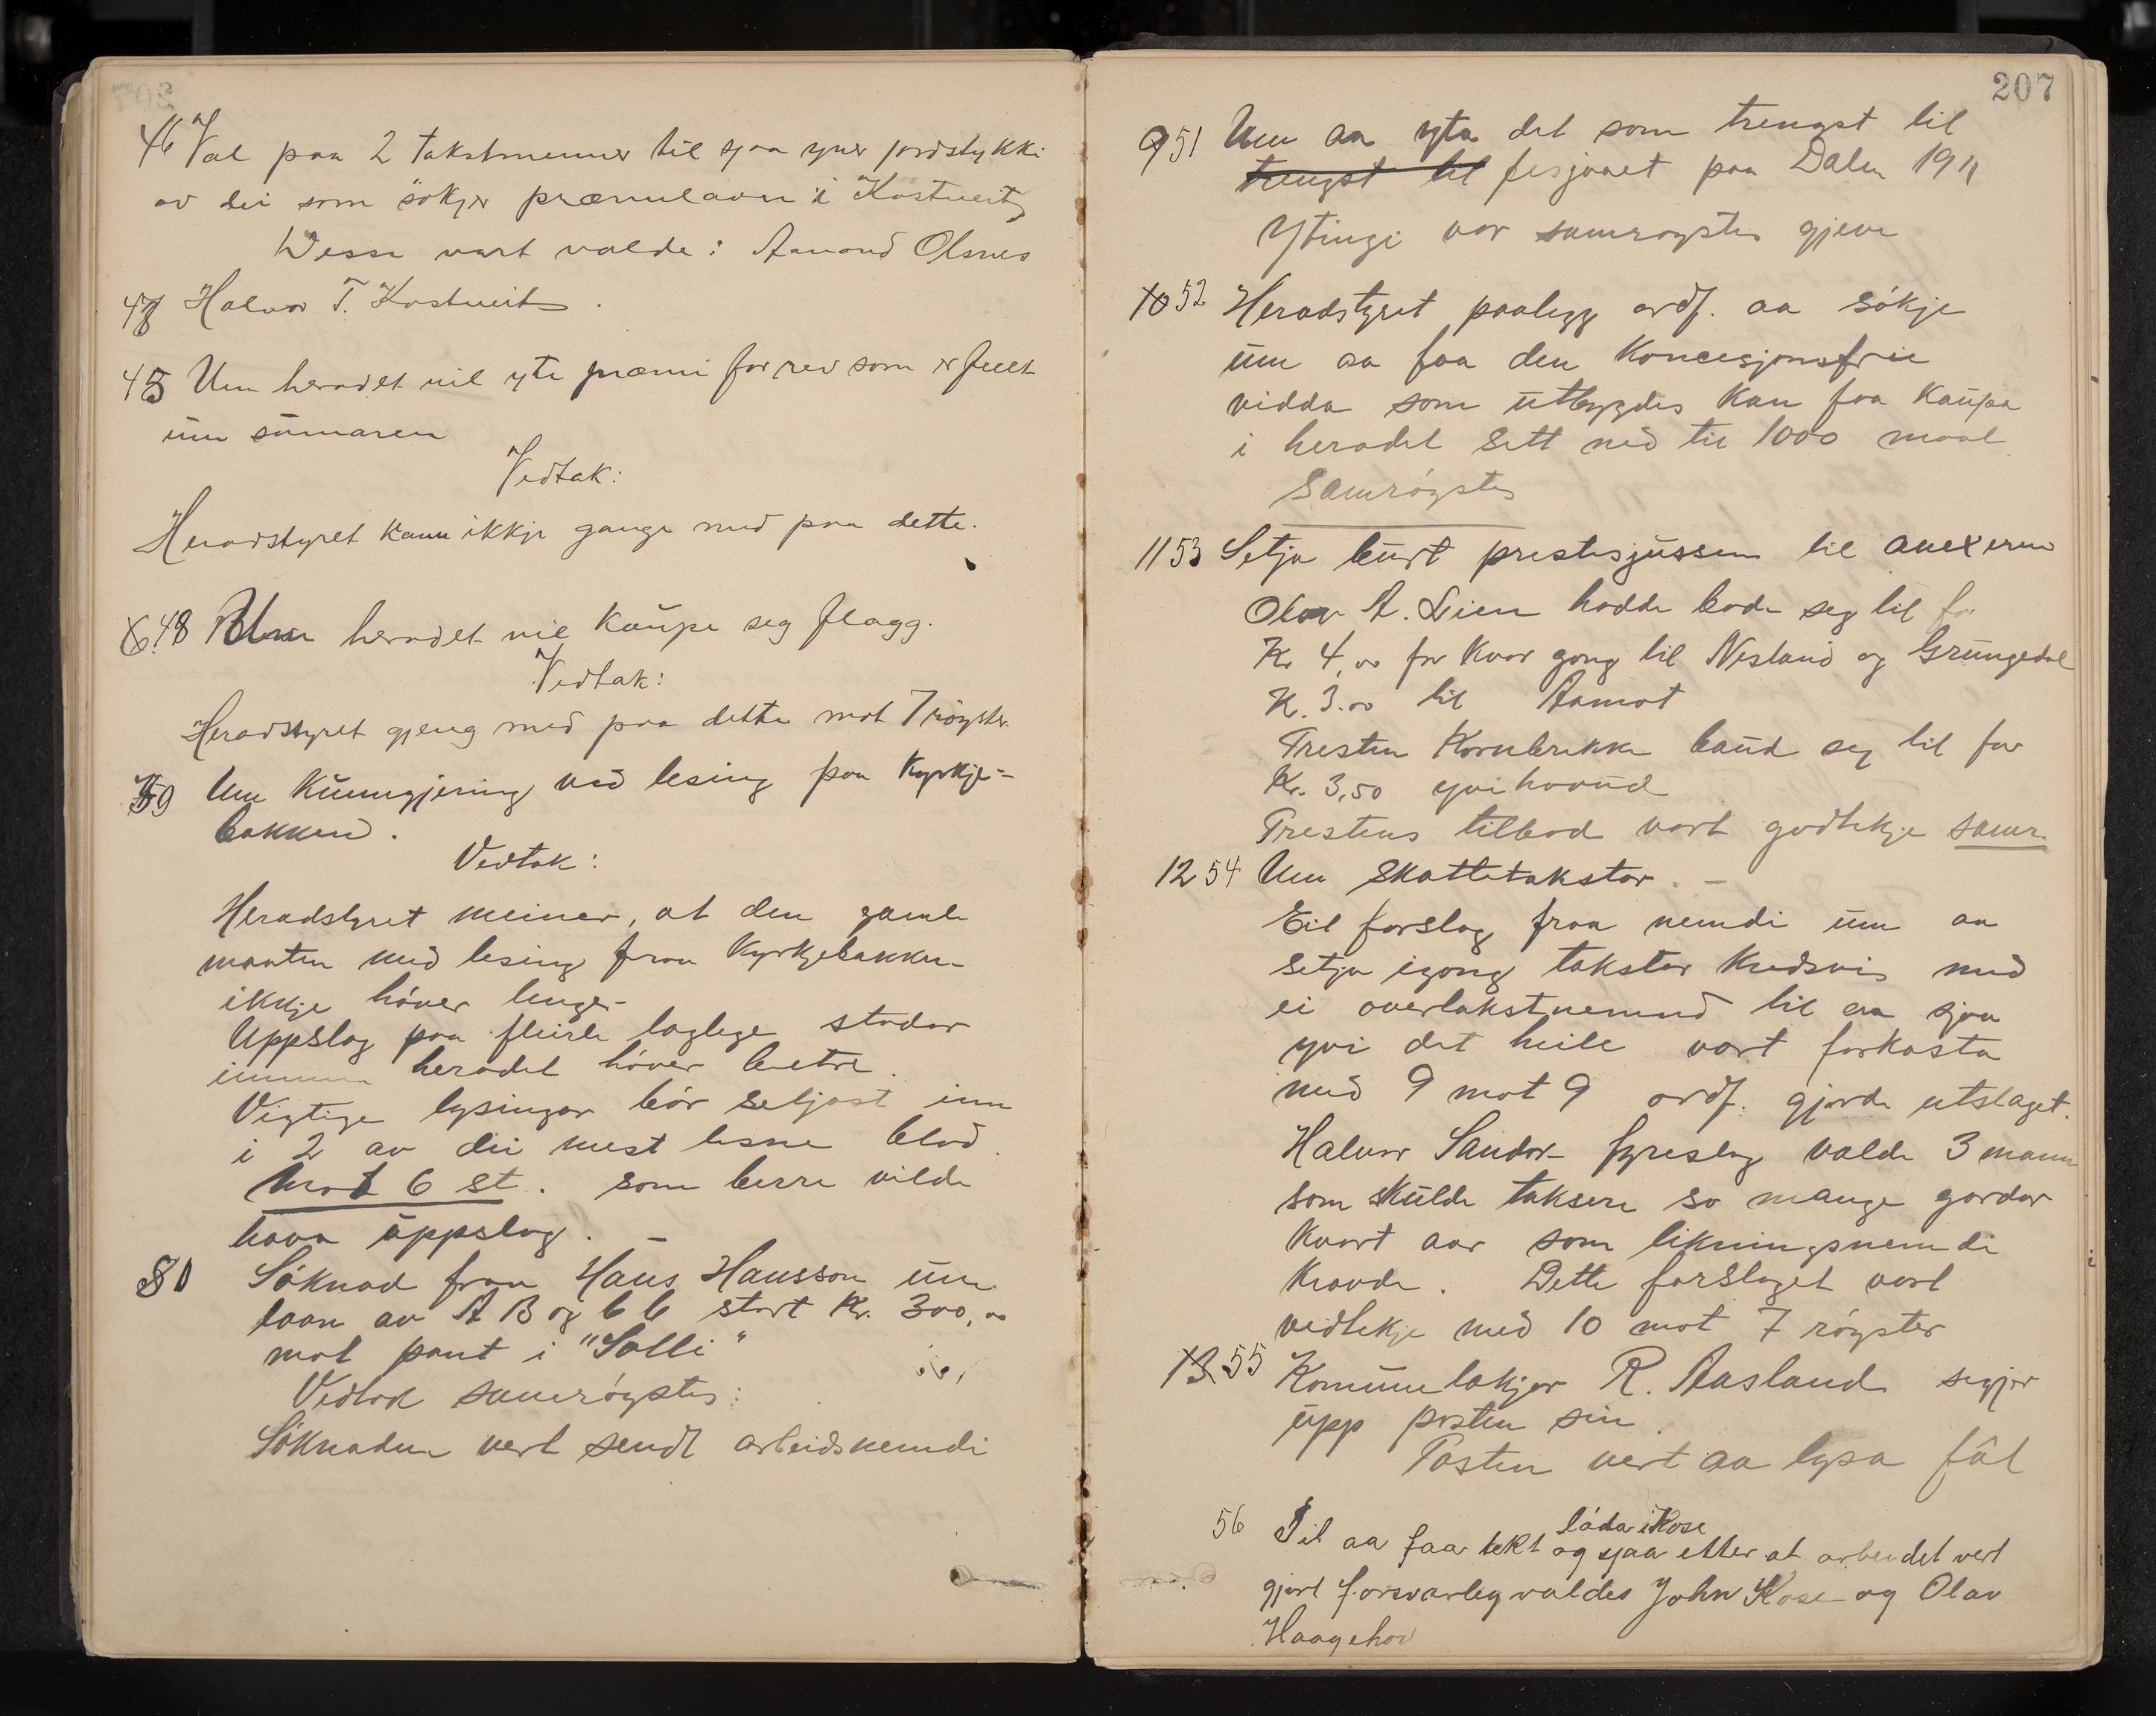 46 Val paa 2 takstmenner til sjaa yver jordstykki
av dei som søkjer præmielaan i Kostveit
Desse vart valde: Aamond Olsnes
47 Halvor T. Kostveit.
45 Um heradet vil yte præmi for rev som er fellt
um sumaren
Vedtak:
Heradstyret kann ikkje gange med paa dette.
6.48 Um heradet vil kaupe seg flagg.
Vedtak:
Heradstyret gjeng med paa dette mot 7 røyster.
49 Um kunngjering ved lesing paa kyrkje-
bakken.
Vedtak:
Heradstyret meiner, at den gamle
maaten med lesing fraa kyrkjebakken
ikkje høver lenger
Uppslag paa fleirle laglege stadar
heradet høver betre.
Vigtige lysingar bør setjast inn
i 2 av dei mest lesne blad.
Mot 6 st. som berre vilde
hava uppslag. —
80 Søknad fraa Hans Hansson um
laan av A B og b b stort Kr. 300,00
mot pant i "Solli"
Vedtok samrøystes:
Søknaden vert sendt arbeidsnemdi
207
9 51 Um aa yta det som trengst til
trengst til fesjaaet paa Dalen 1911
Ytingi var samrøystes gjeve
10 52 Heradstyret paalegg ordf. aa søkje
um aa faa den koncesjonsfrie
vidda som utbygdes kan faa kaupa
i heradet sett ned til 1000 maal
Samrøystes
11 53 Setja burt prestesjussen til anexerne
Olav A. Lien hadde bode seg til for
Kr 4,00 for kvar gong til Nesland og Grungedal
Kr. 3.00 til Aamot
Tresten Kornbrekke baud seg til for
Kr. 3,50 yvihovud
Trestens tilbod vart godtekje samr.
12 54 Um Skattetakstar. —
Eit forslag fraa nemdi um aa
setja igong takstar kredsvis med
ei overtakstnemnd til aa sjaa
yvi det heile vart forkasta
med 9 mot 9 ordf. gjorde utslaget.
Halvor Sandos fyreslog valde 3 mann
som skulde taksere so mange gardar
kvart aar som likningsnemdi
kravde. Dette forslaget vart
vedtekje med 10 mot 7 røyster
13. 55 Komunelækjar R. Aasland segjer
upp posten sin.
Posten vert aa lysa fâl
56 Til aa faa tekt løda i Kose
og sjaa etter at arbeidet vert
gjort forsvarleg valdes John Kose og Olav
Haagehov